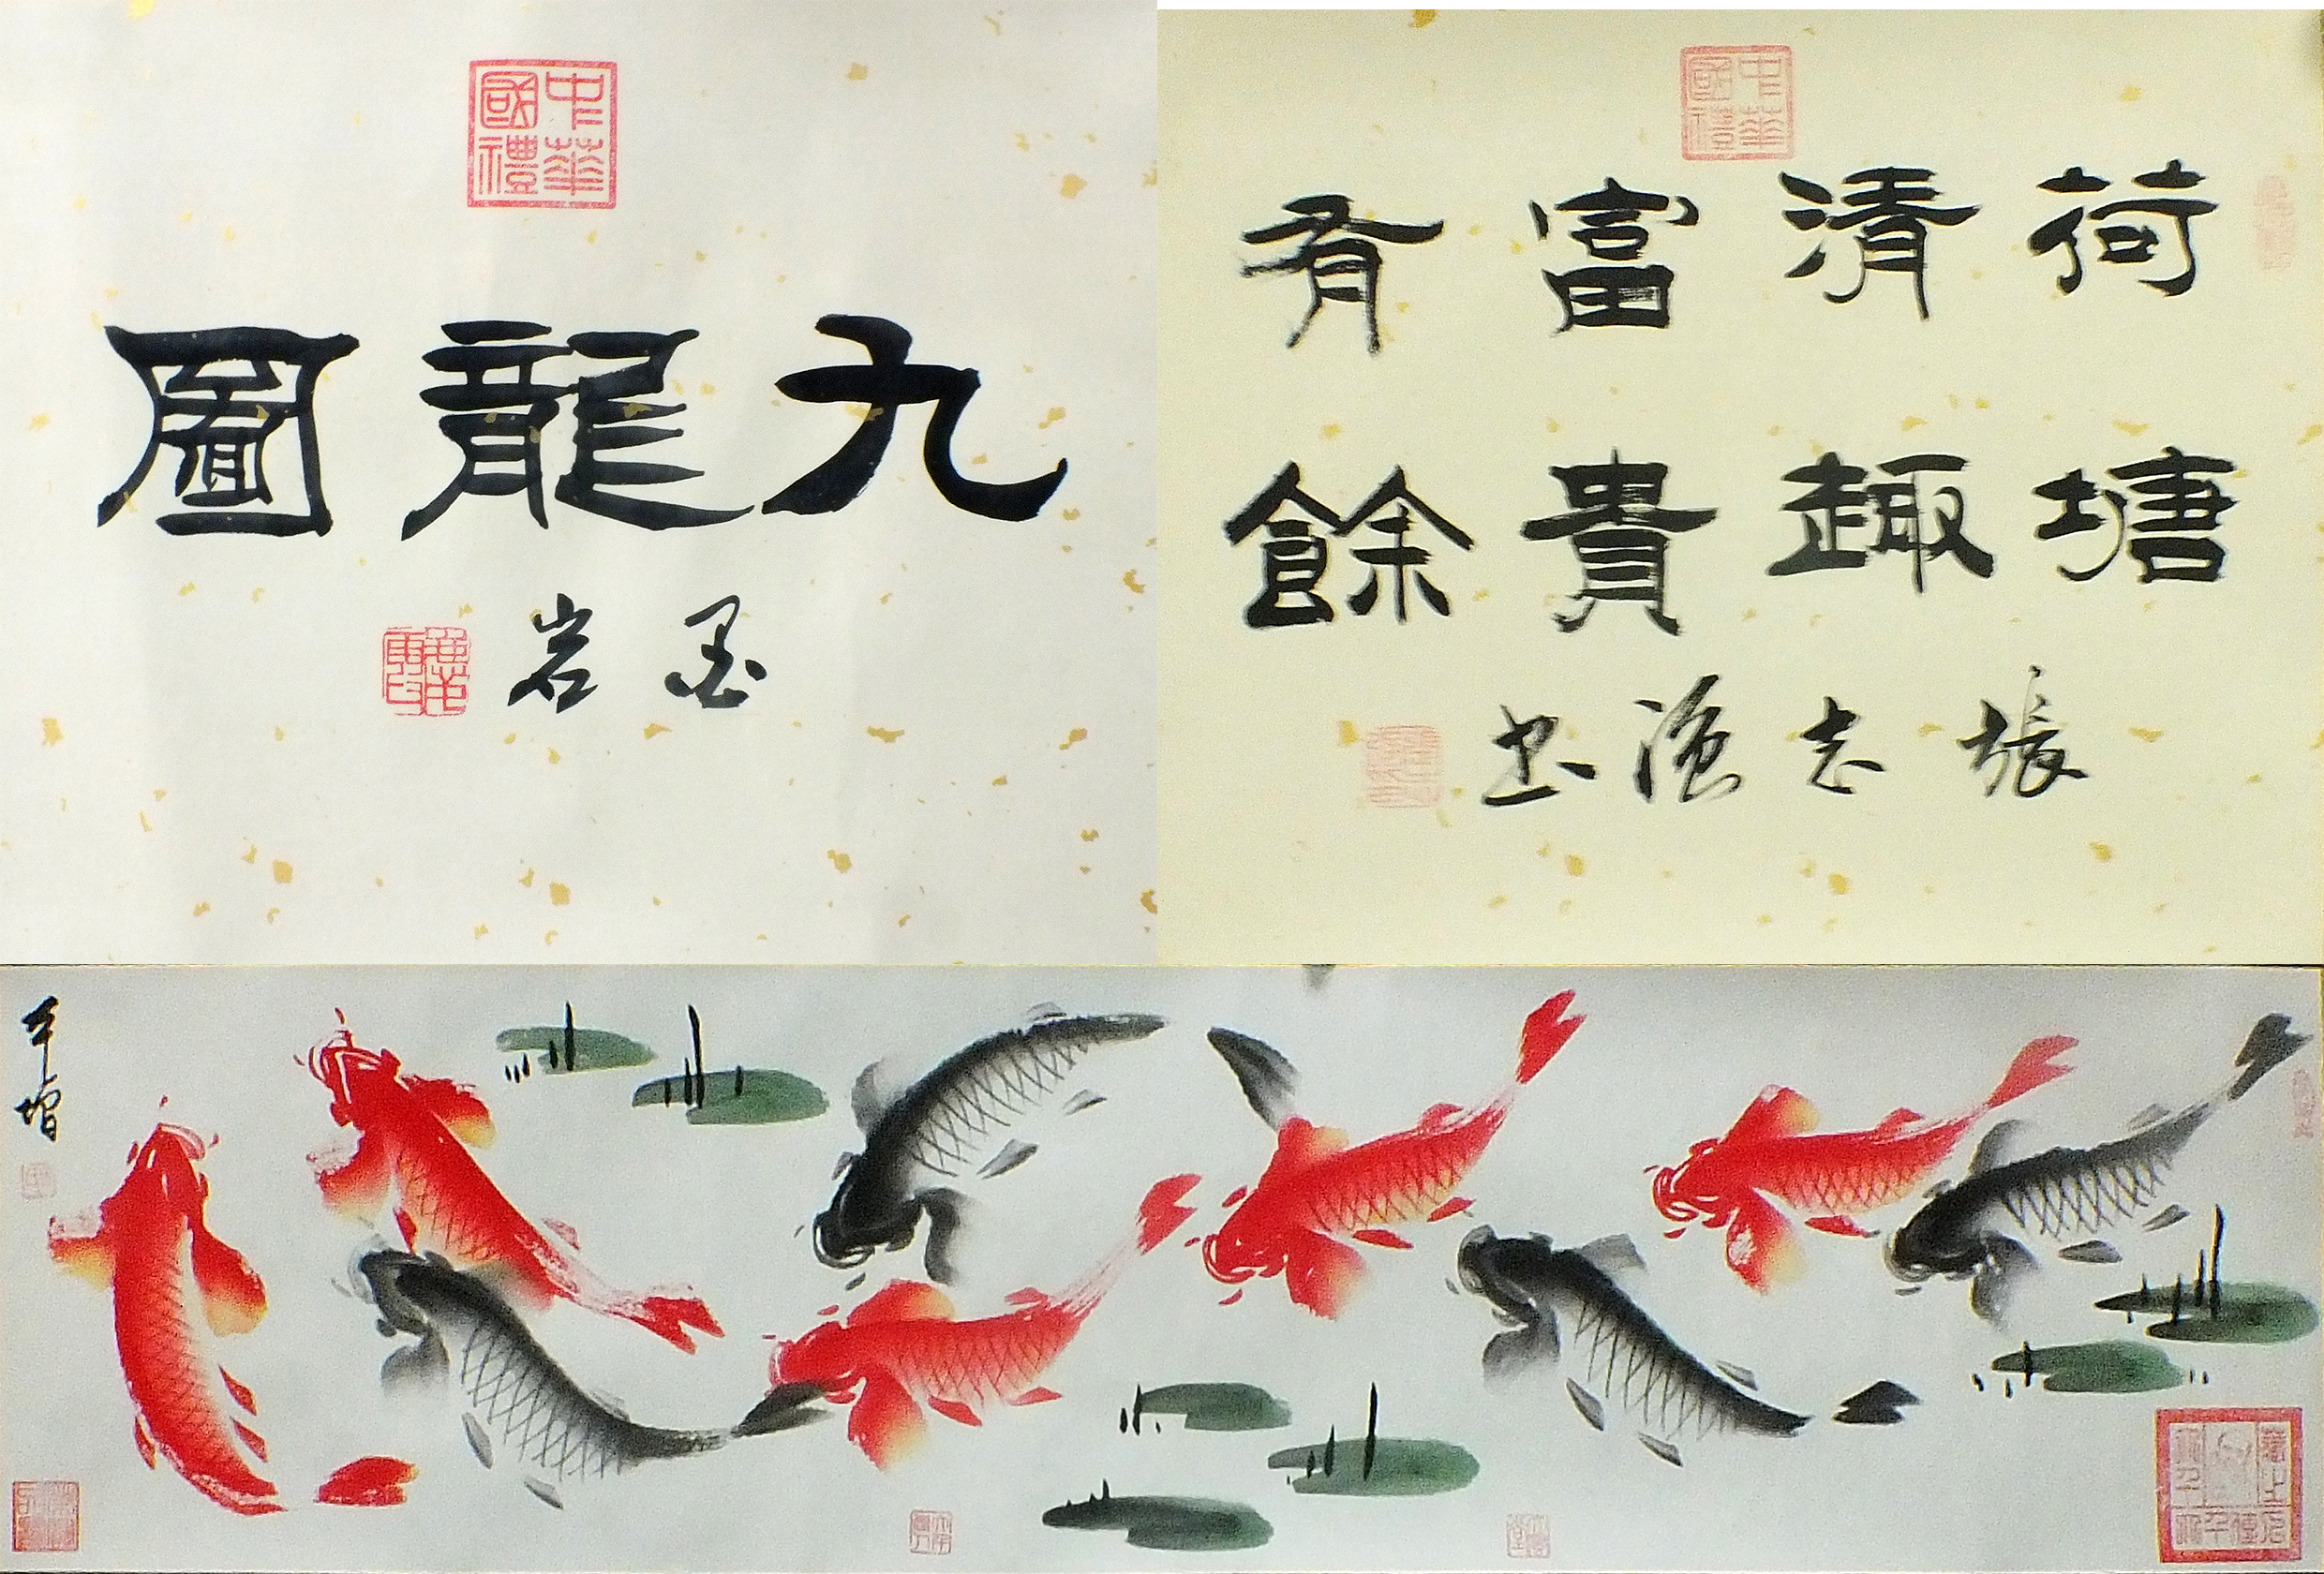 中華國禮
九龍圖
墨岩
中華國禮
荷塘清趣富貴有餘
張志強书